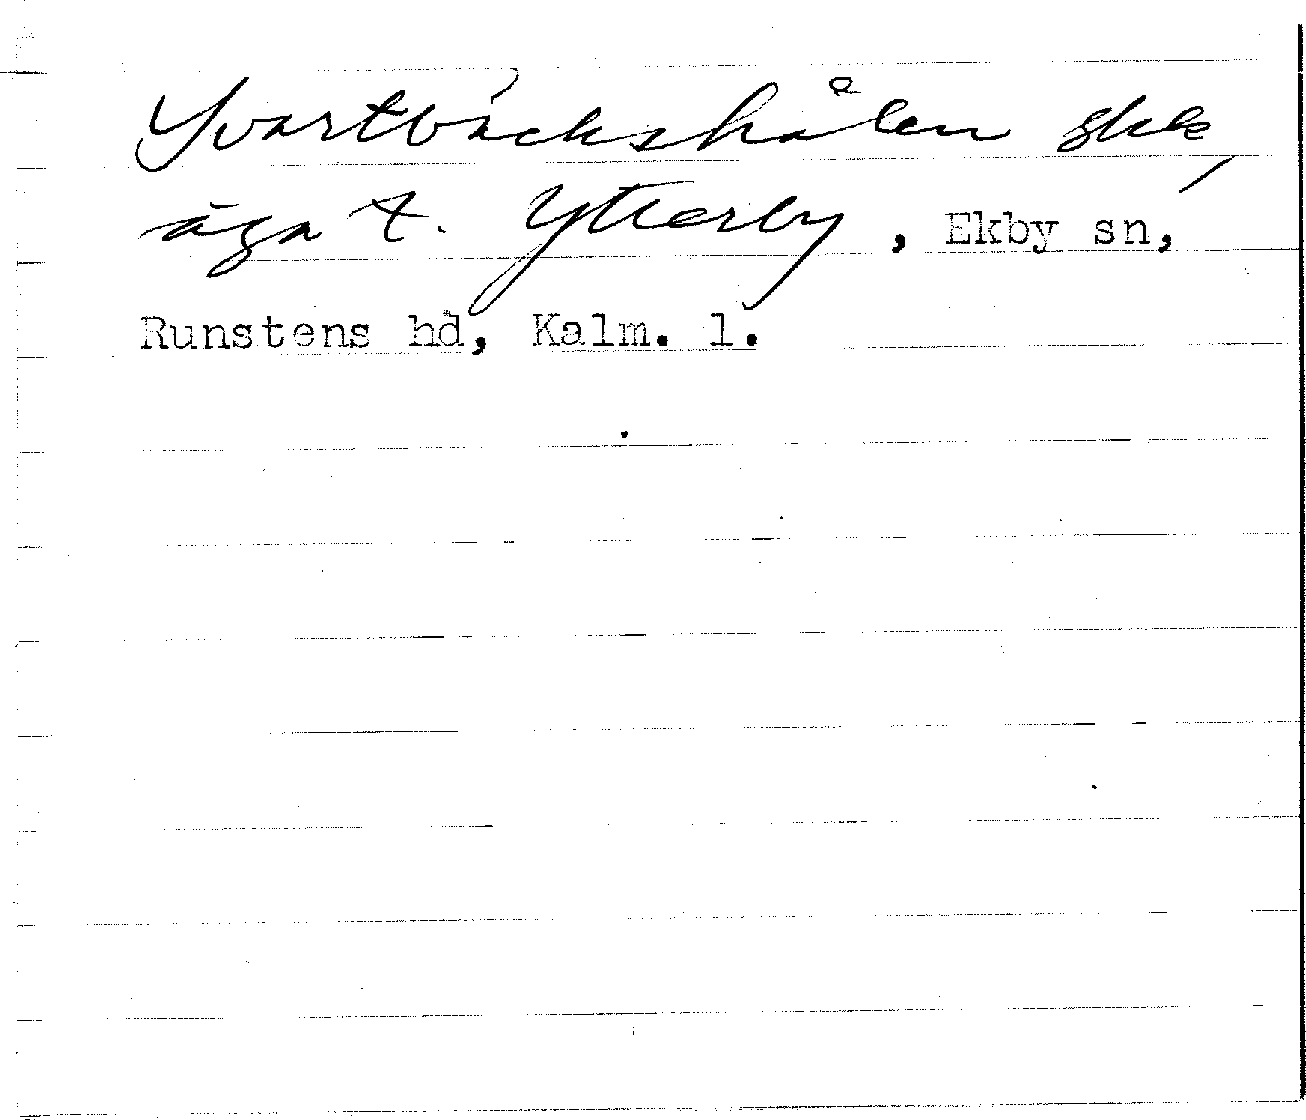 Svartbäckshålen skk,
äga t. Ytterby, Ekby sn,
Runstens hd, Kalm. l.